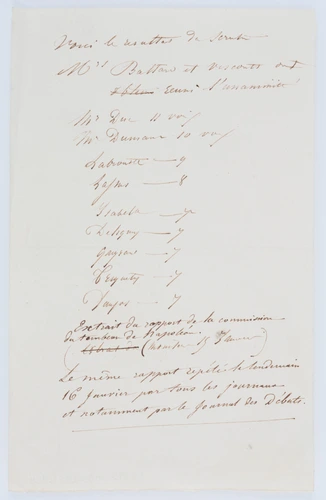 Voici le resultat du Scrutin
Mrs Baltard et Visconti ont
réuni l'unanimité
Mr Duc 11 voix
Mr Dumont 10 voix
Labrouste — 9
Lassus — 8
Isabelle — 7
Deligny — 7
Gayrard — 7
Triquety — 7
Danjoy — 7
Extrait du rapport de la commission
du tombeau de Napoléon
(Débats) (Moniteur 15 Janvier)
Le même rapport repété le lendemain
16 janvier par tous les journaux
et notamment par le Journal des Débats.